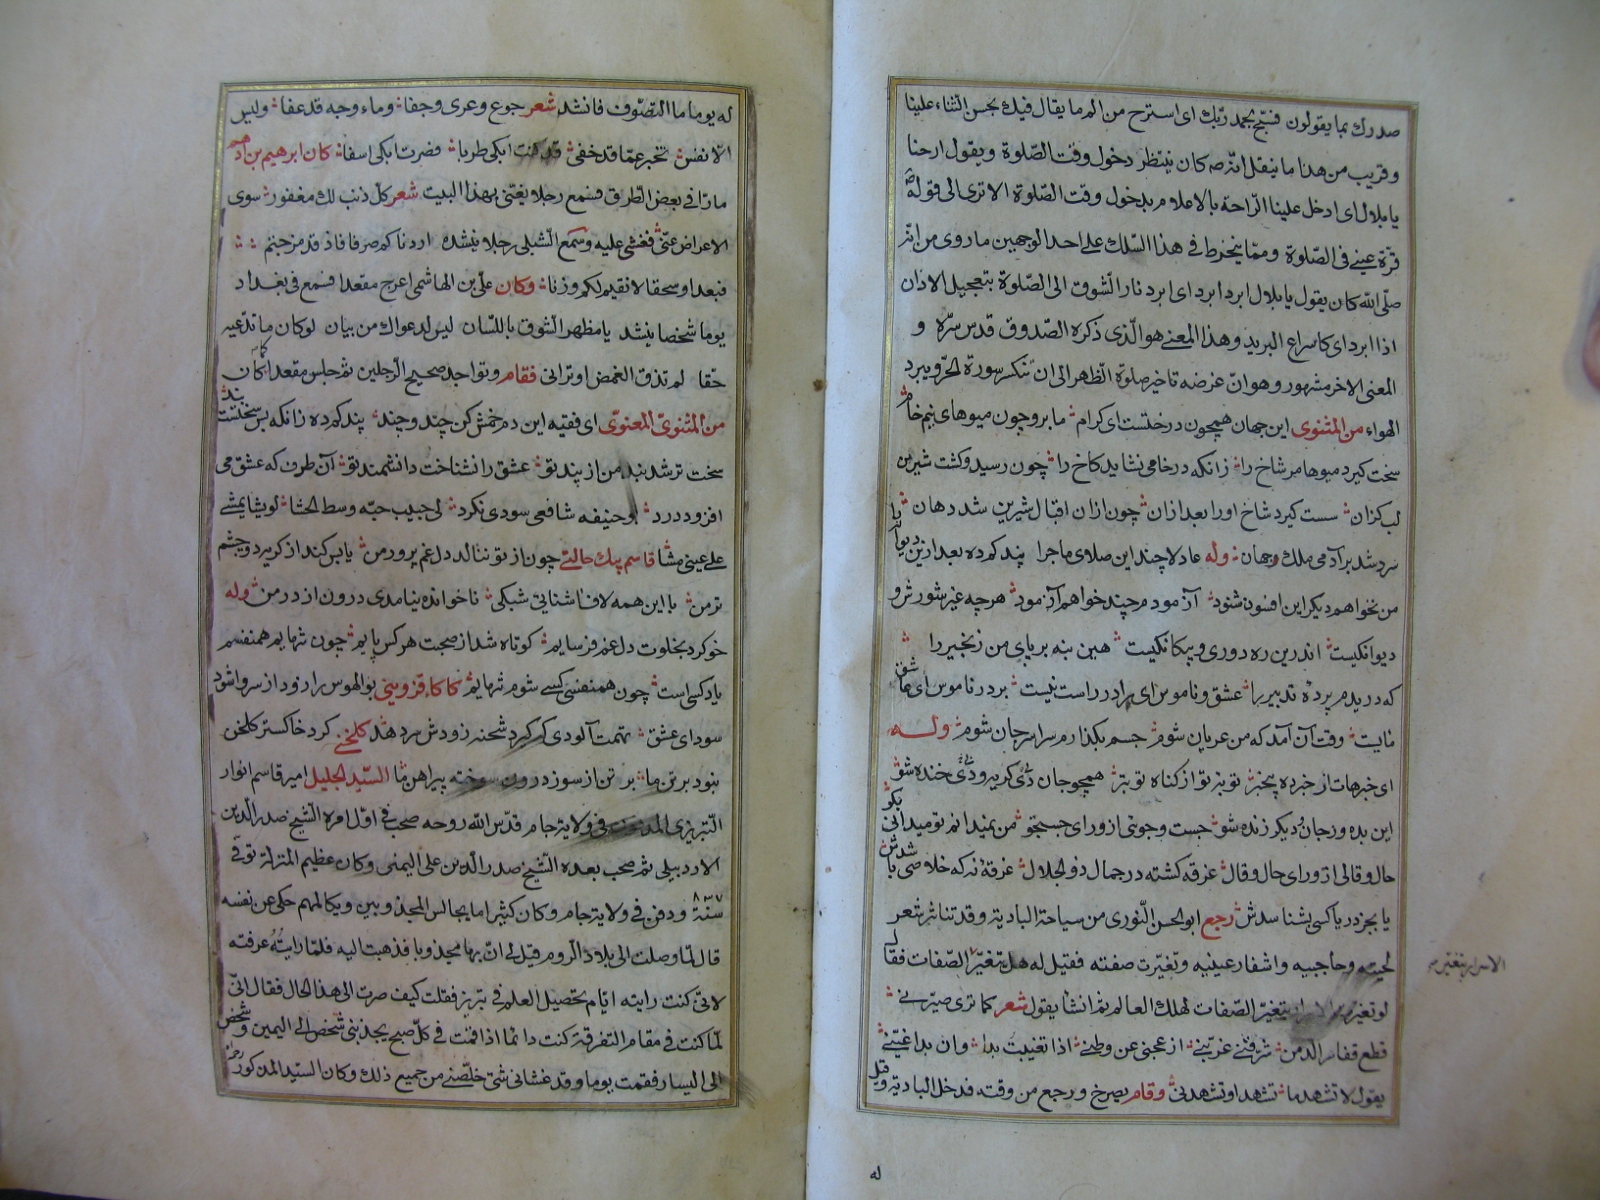 صدرك بما يقولون فسبّح بحمد ربّك اى استرح من الم ما يقال فيك بحسن الثناء علينا
و قريب من هذا ما ينقل انّه ص كان ينتظر دخول وقت الصّلوة و يقول ارحنا
يا بلال اى ادخل علينا الرّاحة بالاعلام بدخول وقت الصّلوة الا ترى الى قوله ص
قرّة عينى فى الصّلوة و ممّا ينخرط فى هذا السّلك على احد الوجهين ما روى من انّه
صلّى الله كان يقول يا بلال ابرد ابرد اى ابرد نار الشوق الى الصّلوة بتعجيل الاذان
اذا ابرد اى كاسراع البريد و هذا المعنى هو الّذى ذكره الصّدوق قدس سرّه و
المعنى الاخر مشهور و هو انّ غرضه تاخير صلوة الظّهر الى ان تنكسر سورة الحرّ و يبرد
الهواء من المثنوى اين جهان همچون درختست اى كرام ما برو چون ميوهاى نيم خام
سخت كيرد ميوها مر شاخ را زانكه در خامى نشايد كاخ را چون رسيد و كشت شيرين
لب كزان سست كيرد شاخ اورا بعد ازان چون ازان اقبال شيرين شد دهان
سرد شد بر آدمى ملك جهان وله عاذلا چند اين صلاى ماجرا پند كم ده بعد ازين ديوانه را
من نخواهم ديكر اين افسون شنود آزمودم چند خواهم آزمود هرچه غير شورش و
ديوانكيست اندرين ره دورى و بيكانكيست هين بنه بر پاى من زنجير را
كه دريدم پرده تدبير را عشق و ناموس اى برادر راست نيست بر در ناموس اى عاشق
مايست وقت آن آمد كه من عريان شوم جسم بكذارم سراسر جان شوم وله
اى خبرهات از خبرده بيخبر توبه تو از كناه تو بتر همچو جان دى كريه و دى خنده شو
اين بده و ز جان ديكر زنده شو جست و جوئى از وراى جستجو من نميدانم تو ميدانى بكو
حال و قالى از وراى حال و قال غرقه كشته در جمال ذو الجلال غرقهٔ نه كه خلاصى باشدش
يا بجز دريا كسى بشناسدش رجع ابو الحسن النّورى من سياحة البادية و قد تناثر شعر
لحيته و حاجبيه و اشفار عينيه و تغيّرت صفته فقيل له هل تتغيّر الاسرار بتغيّر الصّفات فقال
لو تغيّرت الاسرار بتغيّر الصّفات لهلك العالم ثم انشا يقول شعر كما ترى صيّرنى
قطع قفار الدّمن شرّقنى غرّبنى ازعجنى عن وطنى اذا تغيبت بدا و ان بدا غيّبنى
يقول لا تشهد ما تشهد او تشهدنى و قام يصرخ و رجع من وقته فدخل البادية و قيل
الاسرار بتغير
له
له يوما ما التصّوف فانشد شعر جوع و عرى و حفا و ماء وجه قد عفا و ليس
الّا نفس تخبر عمّا قد خفى قد كنت ابكى طربا فصرت ابكى اسفا كان ابرهيم بن ادهم
مارّا فى بعض الطّرق فسمع رجلا يغنّى بهذا البيت شعر كلّ ذنب لك مغفور سوى
الاعراض عنّى فغشى عليه و سمع الشّبلى رجلا ينشده اردناكم صرفا فاذ قد مزجتم
فبعدا و سحقا لا نقيم لكم وزنا و كان علىّ بن الهاشمى اعرج مقعدا فسمع فى بغداد
يوما شخصا ينشد يا مظهر الشوق باللّسان ليس لدعواك من بيان لو كان ما تدّعيه
حقّا لم تذق الغمض او ترانى فقام و تواجد صحيح الرّجلين ثم جلس مقعدا كما كان
من المثنوىّ المعنوىّ اى فقيه اين دم خمش كن چند و چند پند كم ده زانكه بس سختست بند
سخت تر شد بند من از پند تو عشق را نشناخت دانشمند تو آن طرف كه عشق مى
افزود درد بو حنيفه شافعى سودى نكرد لى حبيب حبّه وسط الحشا لو يشا يمشى
على عينى مشا قاسم بيك حالتى چون از تو ننالد دل غم پرور من يا بس كند از كريه دو چشم
تر من با اين همه لاف آشنايى شبكى ناخوانده نيامدى درون از در من وله
خو كرد بخلوت دل غم فرسايم كوتاه شد از صحبت هر كس پايم چون تنهايم همنفسم
ياد كسى است چون همنفسى كسى شوم تنهايم كاكا قزوينى بو الهوس را زود از سر وا شود
سوداى عشق تهمت آلودى كه كيرد شحنه زودش سر دهد كلخنى كرد خاكستر كلخن
نبود بر تن ما بر تن از سوز درون سوخته پيراهن ما السّيّد الجليل امير قاسم انوار
التّبريزى المدفون فى ولاية جام قدّس الله روحه صحب فى اوّل امره الشّيخ صدر الدّين
الاردبيلى ثم صحب بعده الشّيخ صدر الدّين على اليمنى و كان عظيم المنزلة توفى
سنة ٨٣٧ و دفن فى ولاية جام و كان كثيرا ما يجالس المجذوبين و يكالمهم حكى عن نفسه
قال لمّا وصلت الى بلاد الروم قيل لى انّ بها مجذوبا فذهبت اليه فلمّا رايته عرفته
لانّى كنت رايته ايّام تحصيل العلم فى تبريز فقلت كيف صرت الى هذا الحال فقال انّى
لمّا كنت فى مقام التفرقة كنت دائما اذا قمت فى كلّ صبح يجذبنى شخص الى اليمين و شخص
الى اليسار فقمت يوما و قد غشانى شئ خلّصنى من جميع ذلك و كان السيّد المذكور رحمه